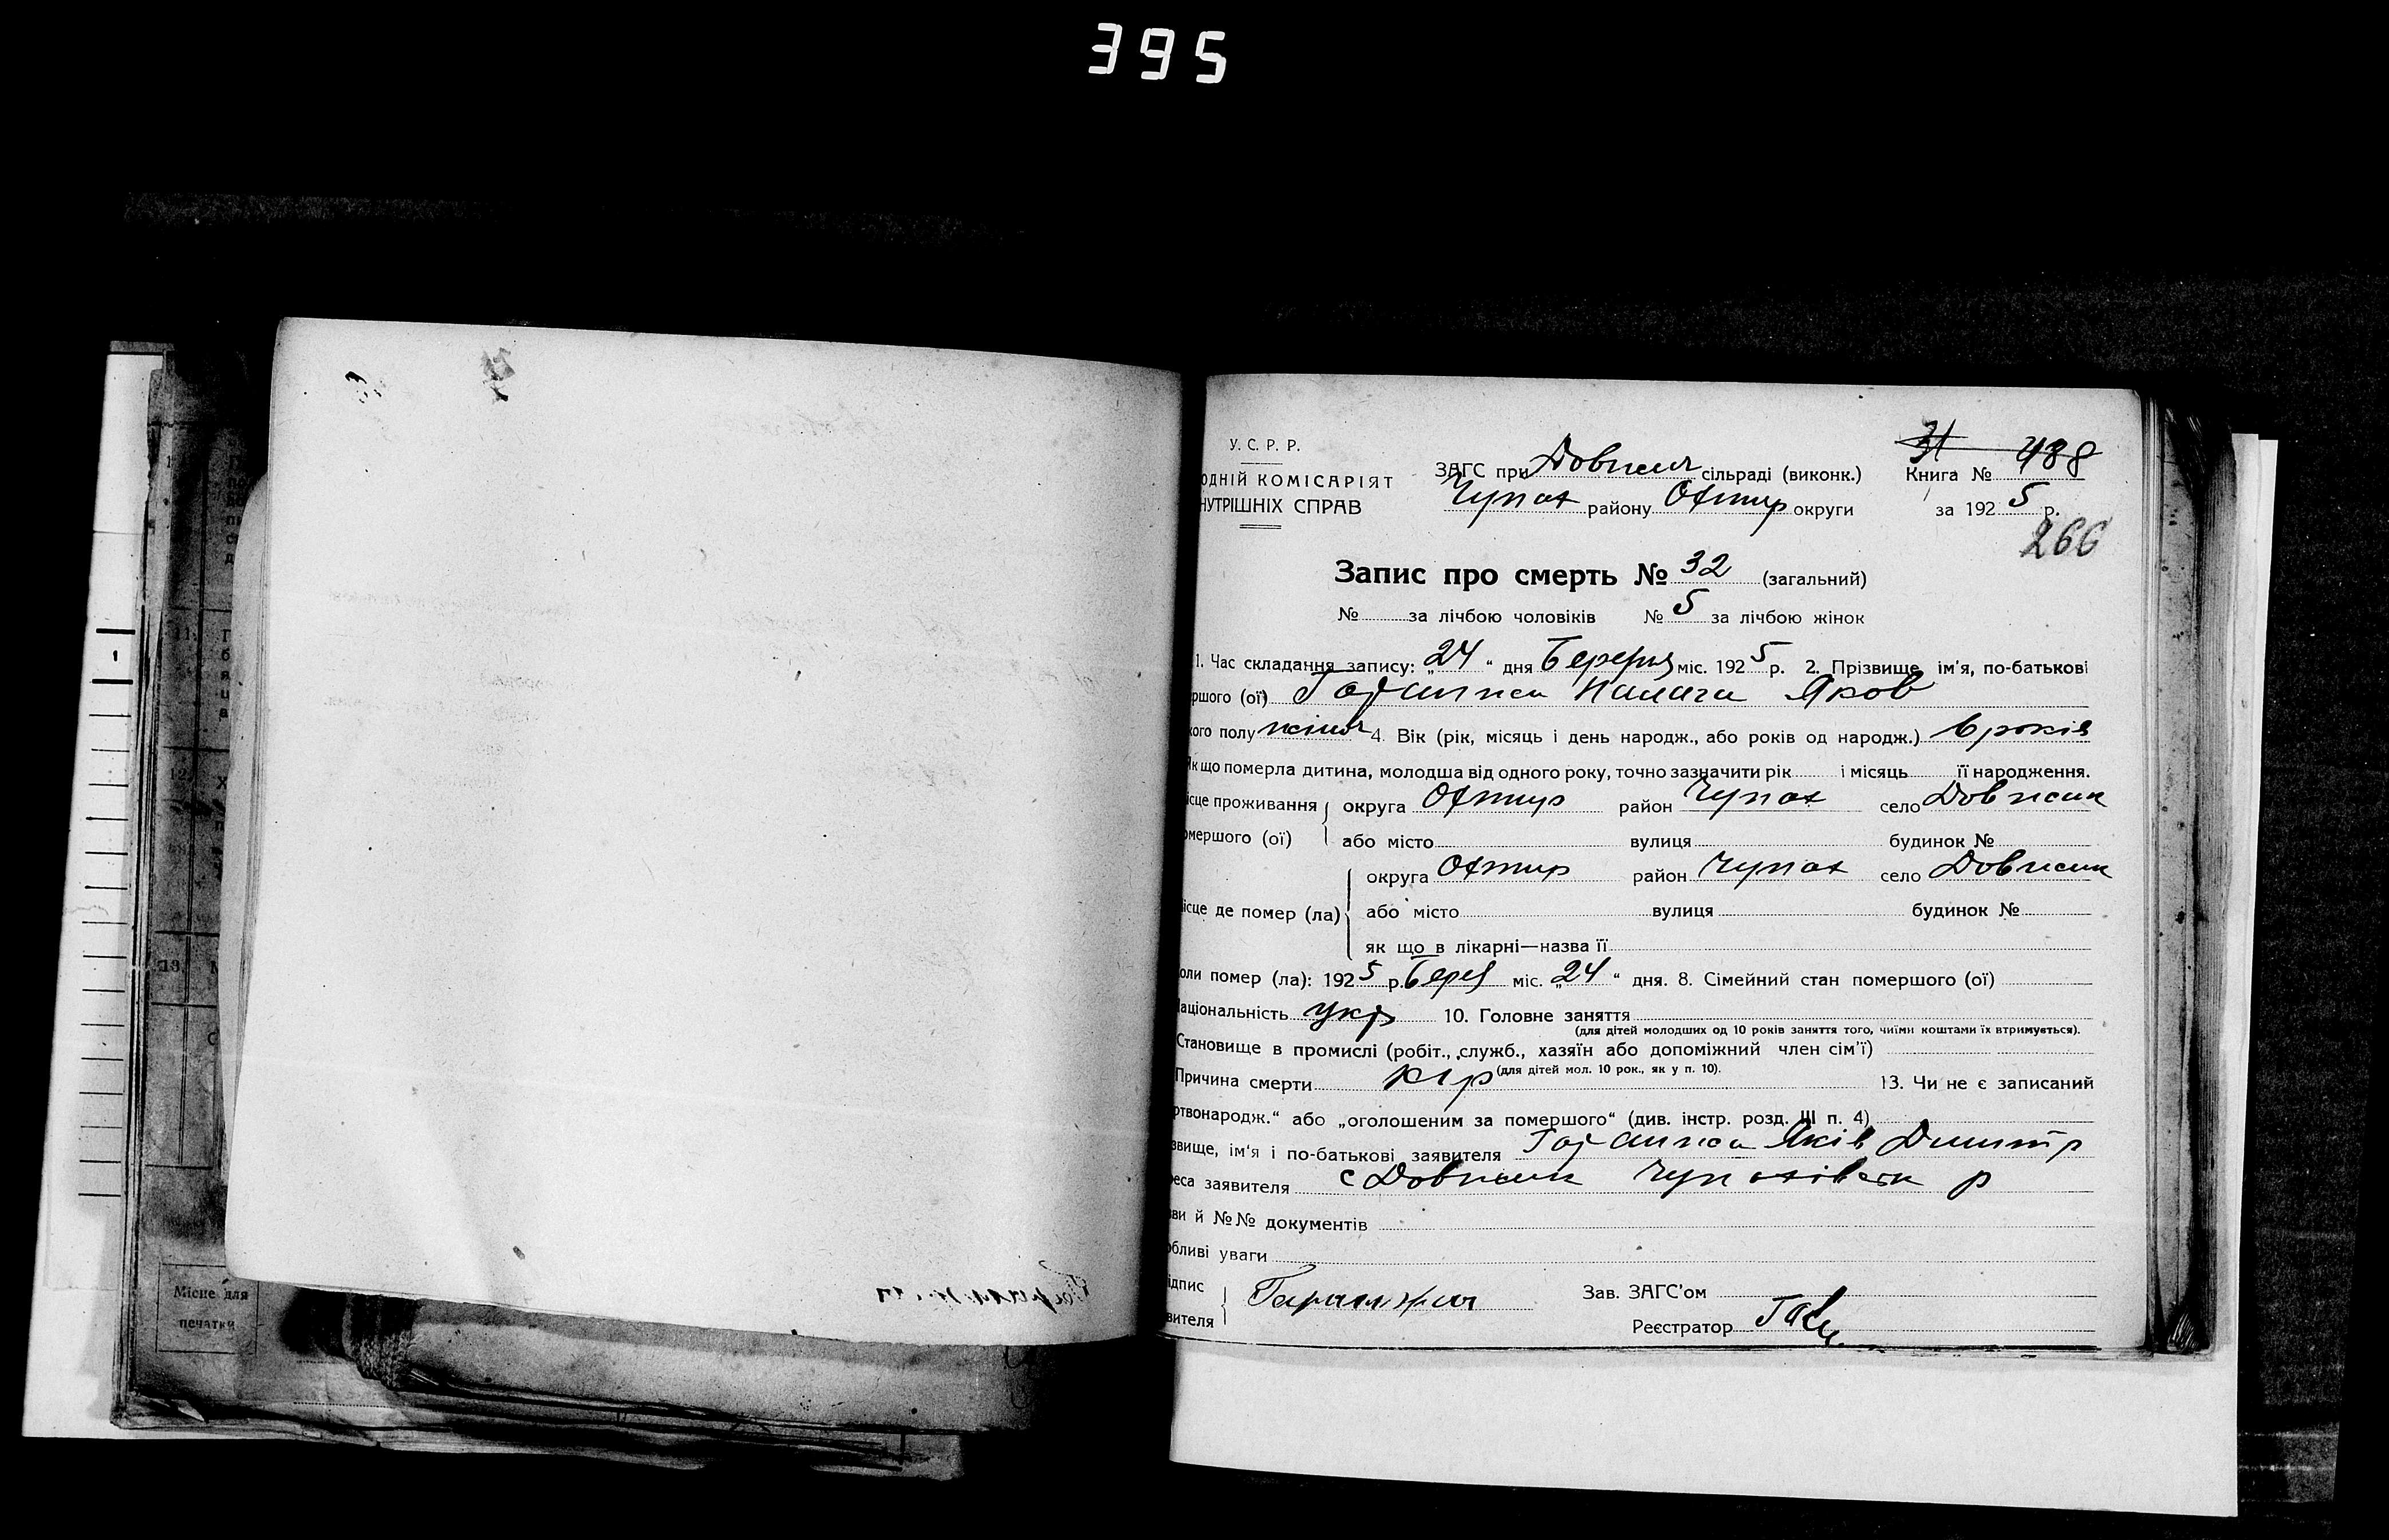 395
31 488
У. С. Р. Р.
ЗАГС при Довжик сільраді (виконк.) Книга №
ОДНІЙ КОМІСАРІЯТ
Чупах району Охтир округи за 1925 р.
НУТРІШНІХ СПРАВ
266
Запис про смерть № 32 (загальний)
№ за лічбою чоловіків № 5 за лічбою жінок
1. Час складання запису: „24“ дня Березня міс. 1925 р. 2. Прізвище, ім'я, по-батькові
ршого (ої) Яков
кого полу жіноч 4. Вік (рік, місяць і день народж., або років од народж.) 6 років
кщо померла дитина, молодша від одного року, точно зазначити рік і місяць її народження.
ісце проживання округа Охтир район Чупах село Довжик
омершого (ої) або місто вулиця будинок №
округа Охтир район Чупах село Довжик
ісце де помер (ла) або місто вулиця будинок №
як що в лікарні—назва її
оли помер (ла): 1925 р. Берез міс. „24“ дня. 8. Сімейний стан помершого (ої)
аціональність укр 10. Головне заняття
(для дітей молодших од 10 років заняття того, чиїми коштами їх втримується).
Становище в промислі (робіт., служб., хазяїн або допоміжний член сім'ї)
(для дітей мол. 10 рок., як у п. 10).
Причина смерти Кір 13. Чи не є записаний
ртвонародж.“ або „оголошеним за помершого“ (див. інстр. розд. III п. 4)
звище, ім'я і по-батькові заявителя Яків Дмитр
еса заявителя с Довжик Чупахівськ р
ви й №№ документів
бливі уваги
ідпис Зав. ЗАГС'ом
вителя
Реєстратор
Місце для
печатки